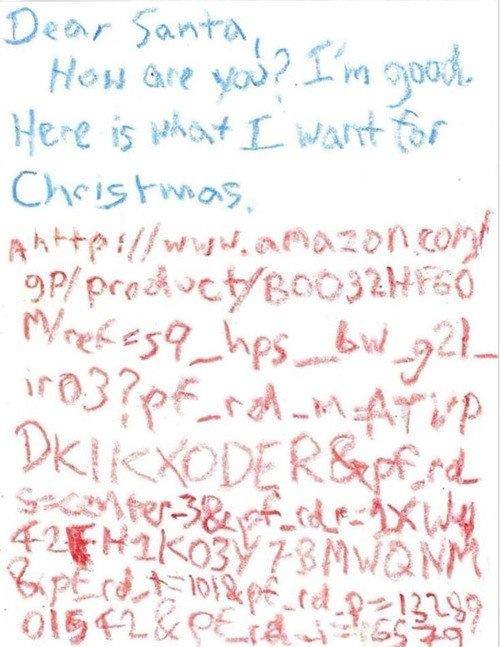 Dear Santa,
How are you? I'm good.
Here is what I want for
Christmas.
A http://www.amazon.com/
gp/product/B0032HF60
M/ref=s9_hps_bw_g21_
ir03?pf_rd_m=ATVP
DKIKX0DER&pf_rd_
s=center-3&pf_rd_r=
42FH1K03Y78MWQNM
&pf_rd_t=101&pf_rd_p=13280
01542&pf_rd_i=16579